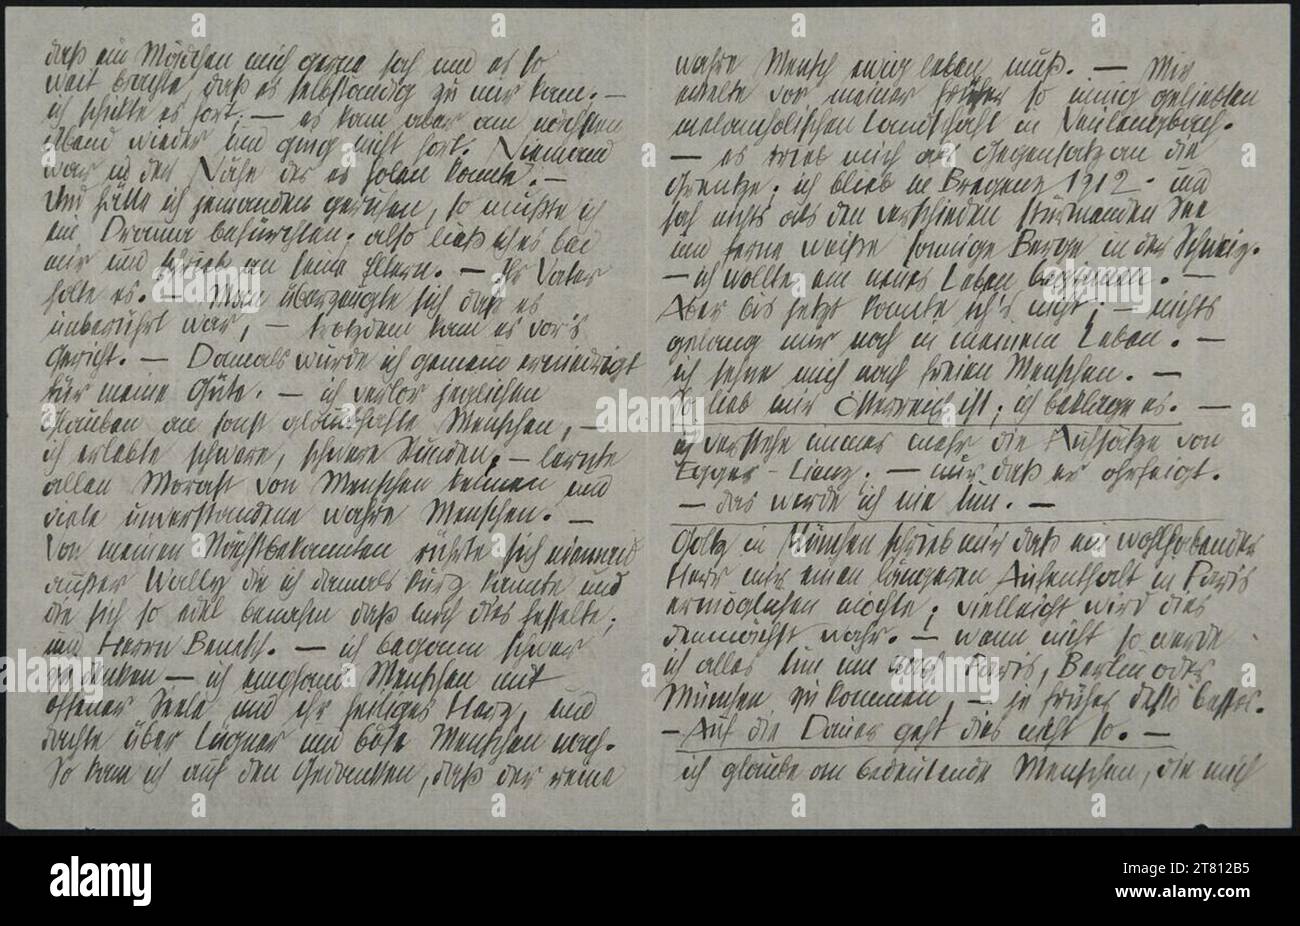 daß ein Mädchen mich gerne sah und es so
weit brachte, daß es selbständig zu mir kam. –
ich schikte es fort; – es kam aber am nächsten
Abend wieder und ging nicht fort. Niemand
war in der Nähe der es holen konnte. –
Und hätte ich jemanden gerufen, so müßte ich
ein Drama befürchten. also ließ ich es bei
mir und schrieb an seine Eltern. – Der Vater
holte es. – Man überzeugte sich daß es
unberührt war, – trotzdem kam es vor's
Gericht. – Damals wurde ich gemein erniedrigt
für meine Güte. – ich verlor jeglichen
Glauben an sonst glaubhafte Menschen, –
ich erlebte schwere, schwere Stunden, – lernte
allen Morast von Menschen kennen und
viele unverstandene wahre Menschen. –
Von meinen Nächstbekannten rührte sich niemand
außer Wally die ich damals kurz kannte und
die sich so edel benahm daß mich dies fesselte;
und Herrn Benesch. – ich begann schwer
zu denken – ich empfand Menschen mit
offener Seele und ihr heiliges Herz, und
dachte über Lügner und böse Menschen nach.
So kam ich auf den Gedanken, daß der reine
wahre Mensch ewig leben muß. – Mir
ekelte vor meiner früher so innig geliebten
melancholischen Landschaft in Neulengbach.
– es trieb mich als Gegensatz an die
Grenze; ich blieb in Bregenz 1912 und
sah nichts als den verschieden stürmenden See
und ferne weiße sonnige Berge in der Schweiz.
– ich wollte ein neues Leben beginnen. –
Aber bis jetzt konnte ich's nicht; – nichts
gelang mir noch in meinem Leben. –
ich sehne mich nach freien Menschen. –
So lieb mir Österreich ist; ich beklage es. –
ich verstehe immer mehr die Aufsätze von
Egger-Lienz. – nur daß er ohrfeigt.
– das werde ich nie tun. –
Goltz in München schrieb mir daß ein wohlhabender
Herr mir einen längeren Aufenthalt in Paris
ermöglichen möchte; vielleicht wird dies
demnächst wahr. – wenn nicht so werde
ich alles tun um nach Paris, Berlin oder
München zu kommen, – je früher desto besser.
– Auf die Dauer geht dies nicht so. –
ich glaube an bedeutende Menschen, die mich
alamy
Image ID: 2T812B5
www.alamy.com